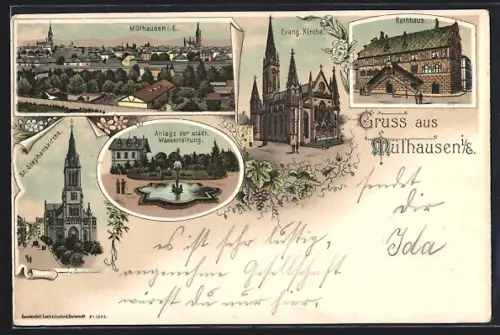 Mülhausen i. E.
Evang. Kirche.
Rathhaus.
St. Stephanskirche.
Anlage der städt.
Wasserleitung.
Gruss aus
Mülhausen i/E.
sendet
Dir
Ida
es ist sehr lustig,
angenehme Gesellschaft
wärst du nur hier.